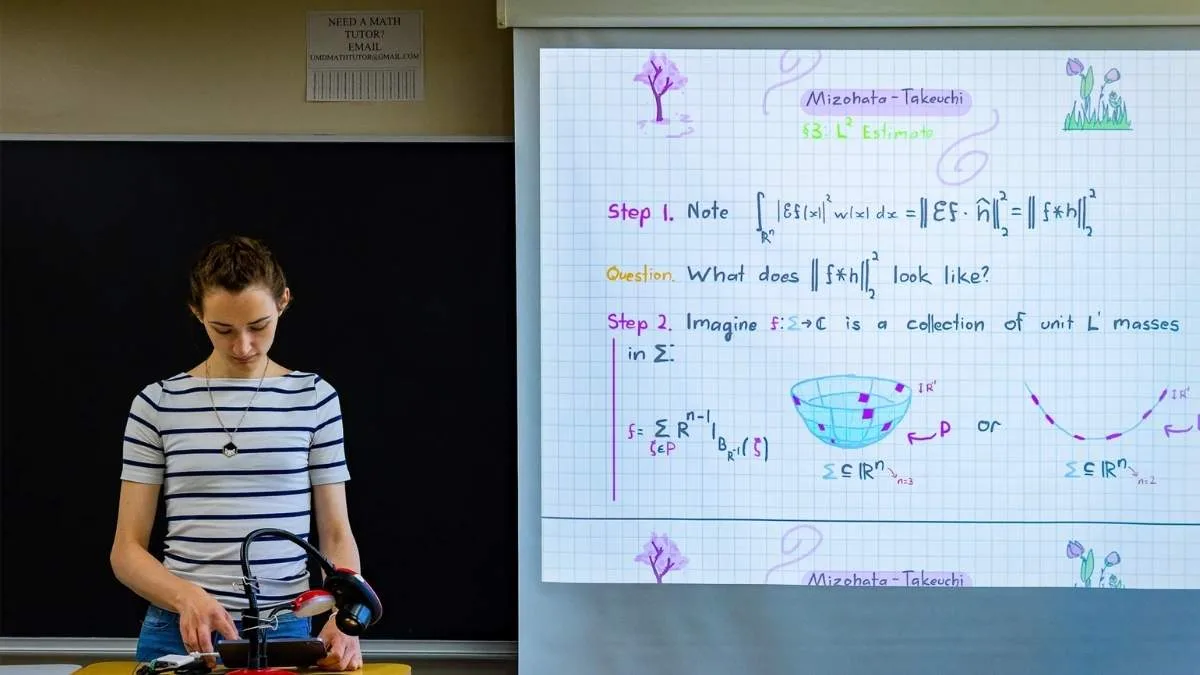 NEED A MATH
TUTOR?
EMAIL
UMDMATHTUTOR@GMAIL.COM
Mizohata-Takeuchi
§3: L² Estimate
Step 1. Note ∫_{ℝⁿ} |Ɛf(x)|² w(x) dx = ‖Ɛf · ĥ‖₂² = ‖f*h‖₂²
Question. What does ‖f*h‖₂² look like?
Step 2. Imagine f: Σ → ℂ is a collection of unit L¹ masses
in Σ:
f = Σ_{ζ∈P} R^{n-1} 1_{B_{R^{-1}}(ζ)}
IR⁻¹
P
or
Σ ⊆ ℝⁿ
n=3
IR⁻¹
Σ ⊆ ℝⁿ
n=2
Mizohata-Takeuchi